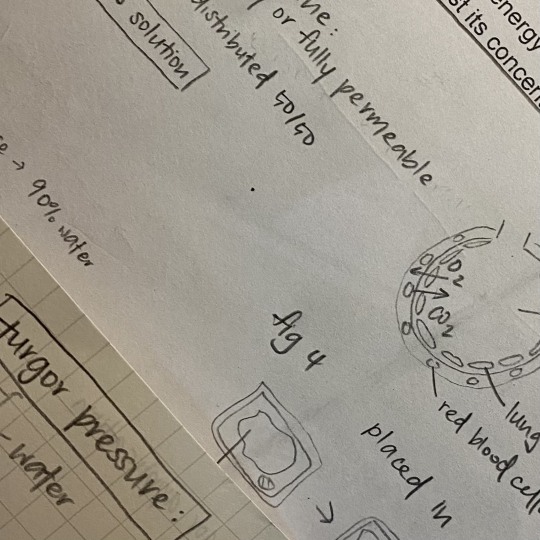 energy
st its concen
ne:
or fully permeable
distributed 50/50
solution
→ 90% water
O2
CO2
lung
red blood cell
fig 4
placed in
turgor pressure:
- water